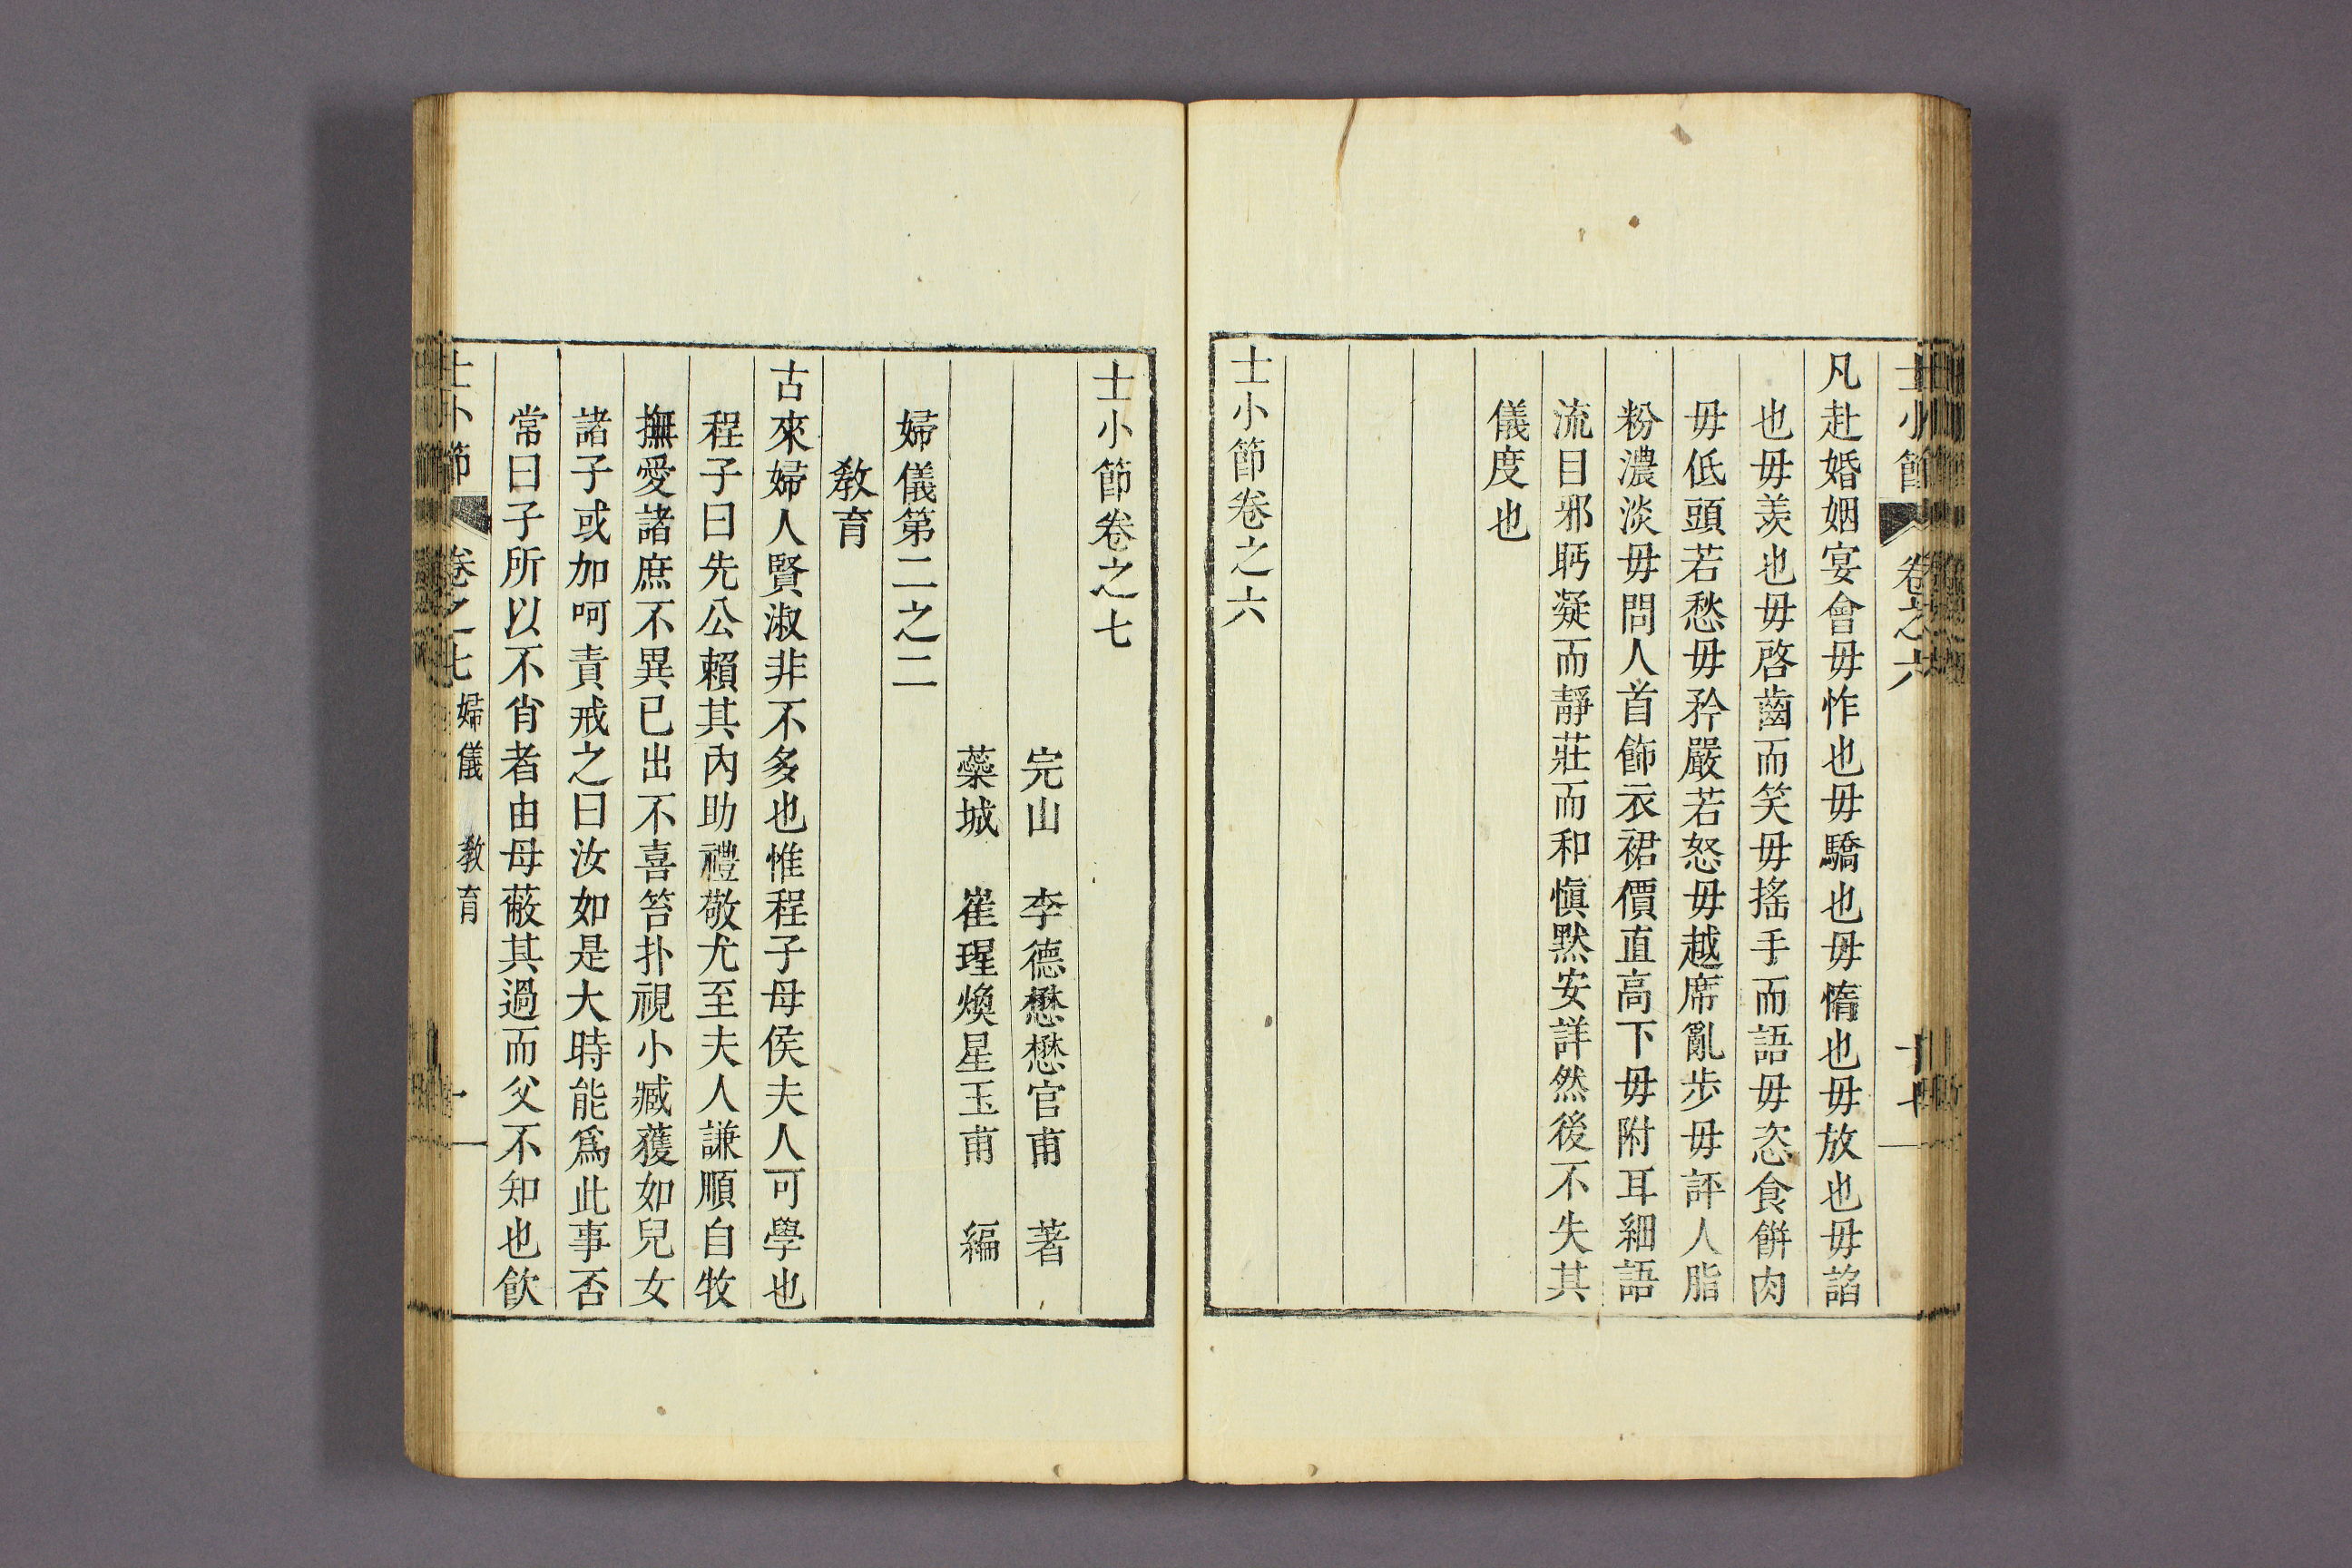 士小節 卷之六 十七
凡赴婚姻宴會毋怍也毋驕也毋惰也毋放也毋諂
也毋羨也毋啓齒而笑毋搖手而語毋恣食餠肉
毋低頭若愁毋矜嚴若怒毋越席亂步毋評人脂
粉濃淡毋問人首飾衣裙價直高下毋附耳細語
流目邪眄凝而靜莊而和愼默安詳然後不失其
儀度也
士小節卷之六
士小節卷之七
完山 李德懋懋官甫 著
蘂城 崔瑆煥星玉甫 編
婦儀第二之二
敎育
古來婦人賢淑非不多也惟程子母侯夫人可學也
程子曰先公賴其內助禮敬尤至夫人謙順自牧
撫愛諸庶不異已出不喜笞扑視小臧獲如兒女
諸子或加呵責戒之曰汝如是大時能爲此事否
常曰子所以不肖者由母蔽其過而父不知也飮
士小節 卷之七 婦儀 敎育 一